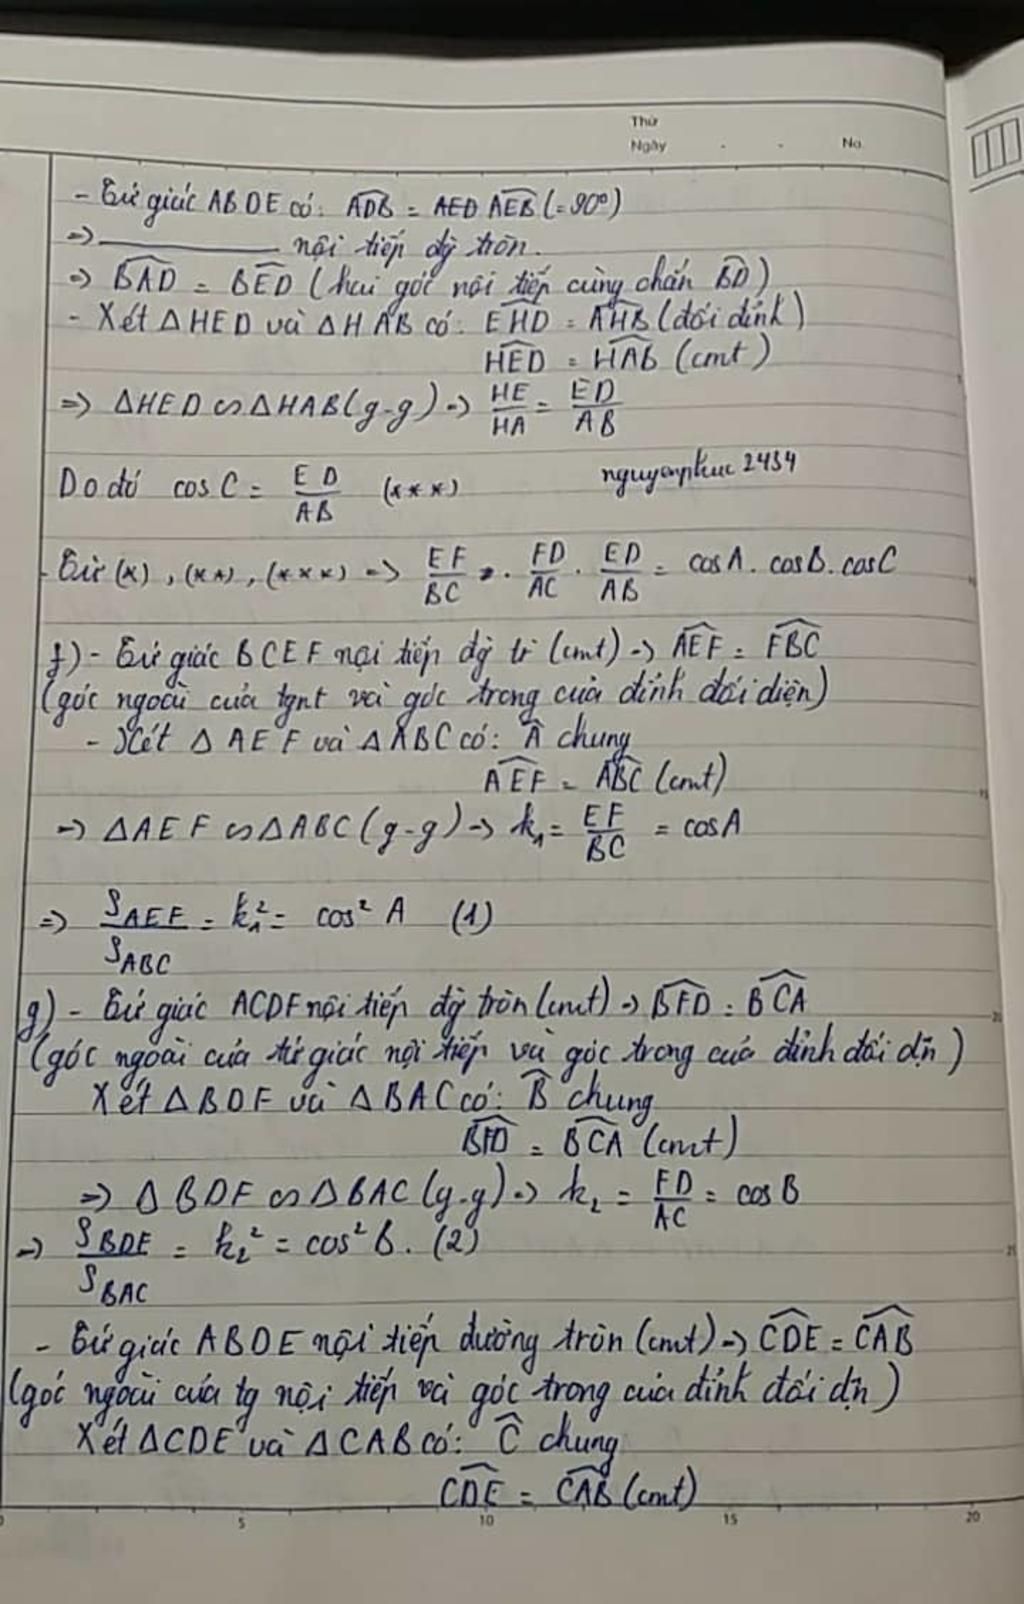 Thứ
Ngày . . No.
- Tứ giác ABDE có: ADB = AED AEB (= 90°)
=> ________ nội tiếp đg tròn.
=> BAD = BED (hai góc nội tiếp cùng chắn BD)
- Xét ΔHED và ΔHAB có: EHD = AHB (đối đỉnh)
HED = HAB (cmt)
=> ΔHED ∽ ΔHAB (g-g) => HE/HA = ED/AB
Do đó cos C = ED/AB (***)
nguyenphuc 2434
- Từ (*), (**), (***) => EF/BC . FD/AC . ED/AB = cosA . cosB . cosC
f) - Tứ giác BCEF nội tiếp đg tr (cmt) => AEF = FBC
(góc ngoài của tgnt và góc trong của đỉnh đối diện)
- Xét ΔAEF và ΔABC có: Â chung
AEF = ABC (cmt)
=> ΔAEF ∽ ΔABC (g-g) => k₁ = EF/BC = cosA
=> S_AEF/S_ABC = k₁² = cos² A (1)
g) - Tứ giác ACDF nội tiếp đg tròn (cmt) => BFD = BCA
(góc ngoài của tứ giác nội tiếp và góc trong của đỉnh đối dịn)
Xét ΔBDF và ΔBAC có: B̂ chung
BFD = BCA (cmt)
=> ΔBDF ∽ ΔBAC (g-g) => k₂ = FD/AC = cos B
=> S_BDE/S_BAC = k₂² = cos² B. (2)
- Tứ giác ABDE nội tiếp đường tròn (cmt) => CDE = CAB
(góc ngoài của tg nội tiếp và góc trong của đỉnh đối dịn)
Xét ΔCDE và ΔCAB có: Ĉ chung
CDE = CAB (cmt)
0 5 10 15 20